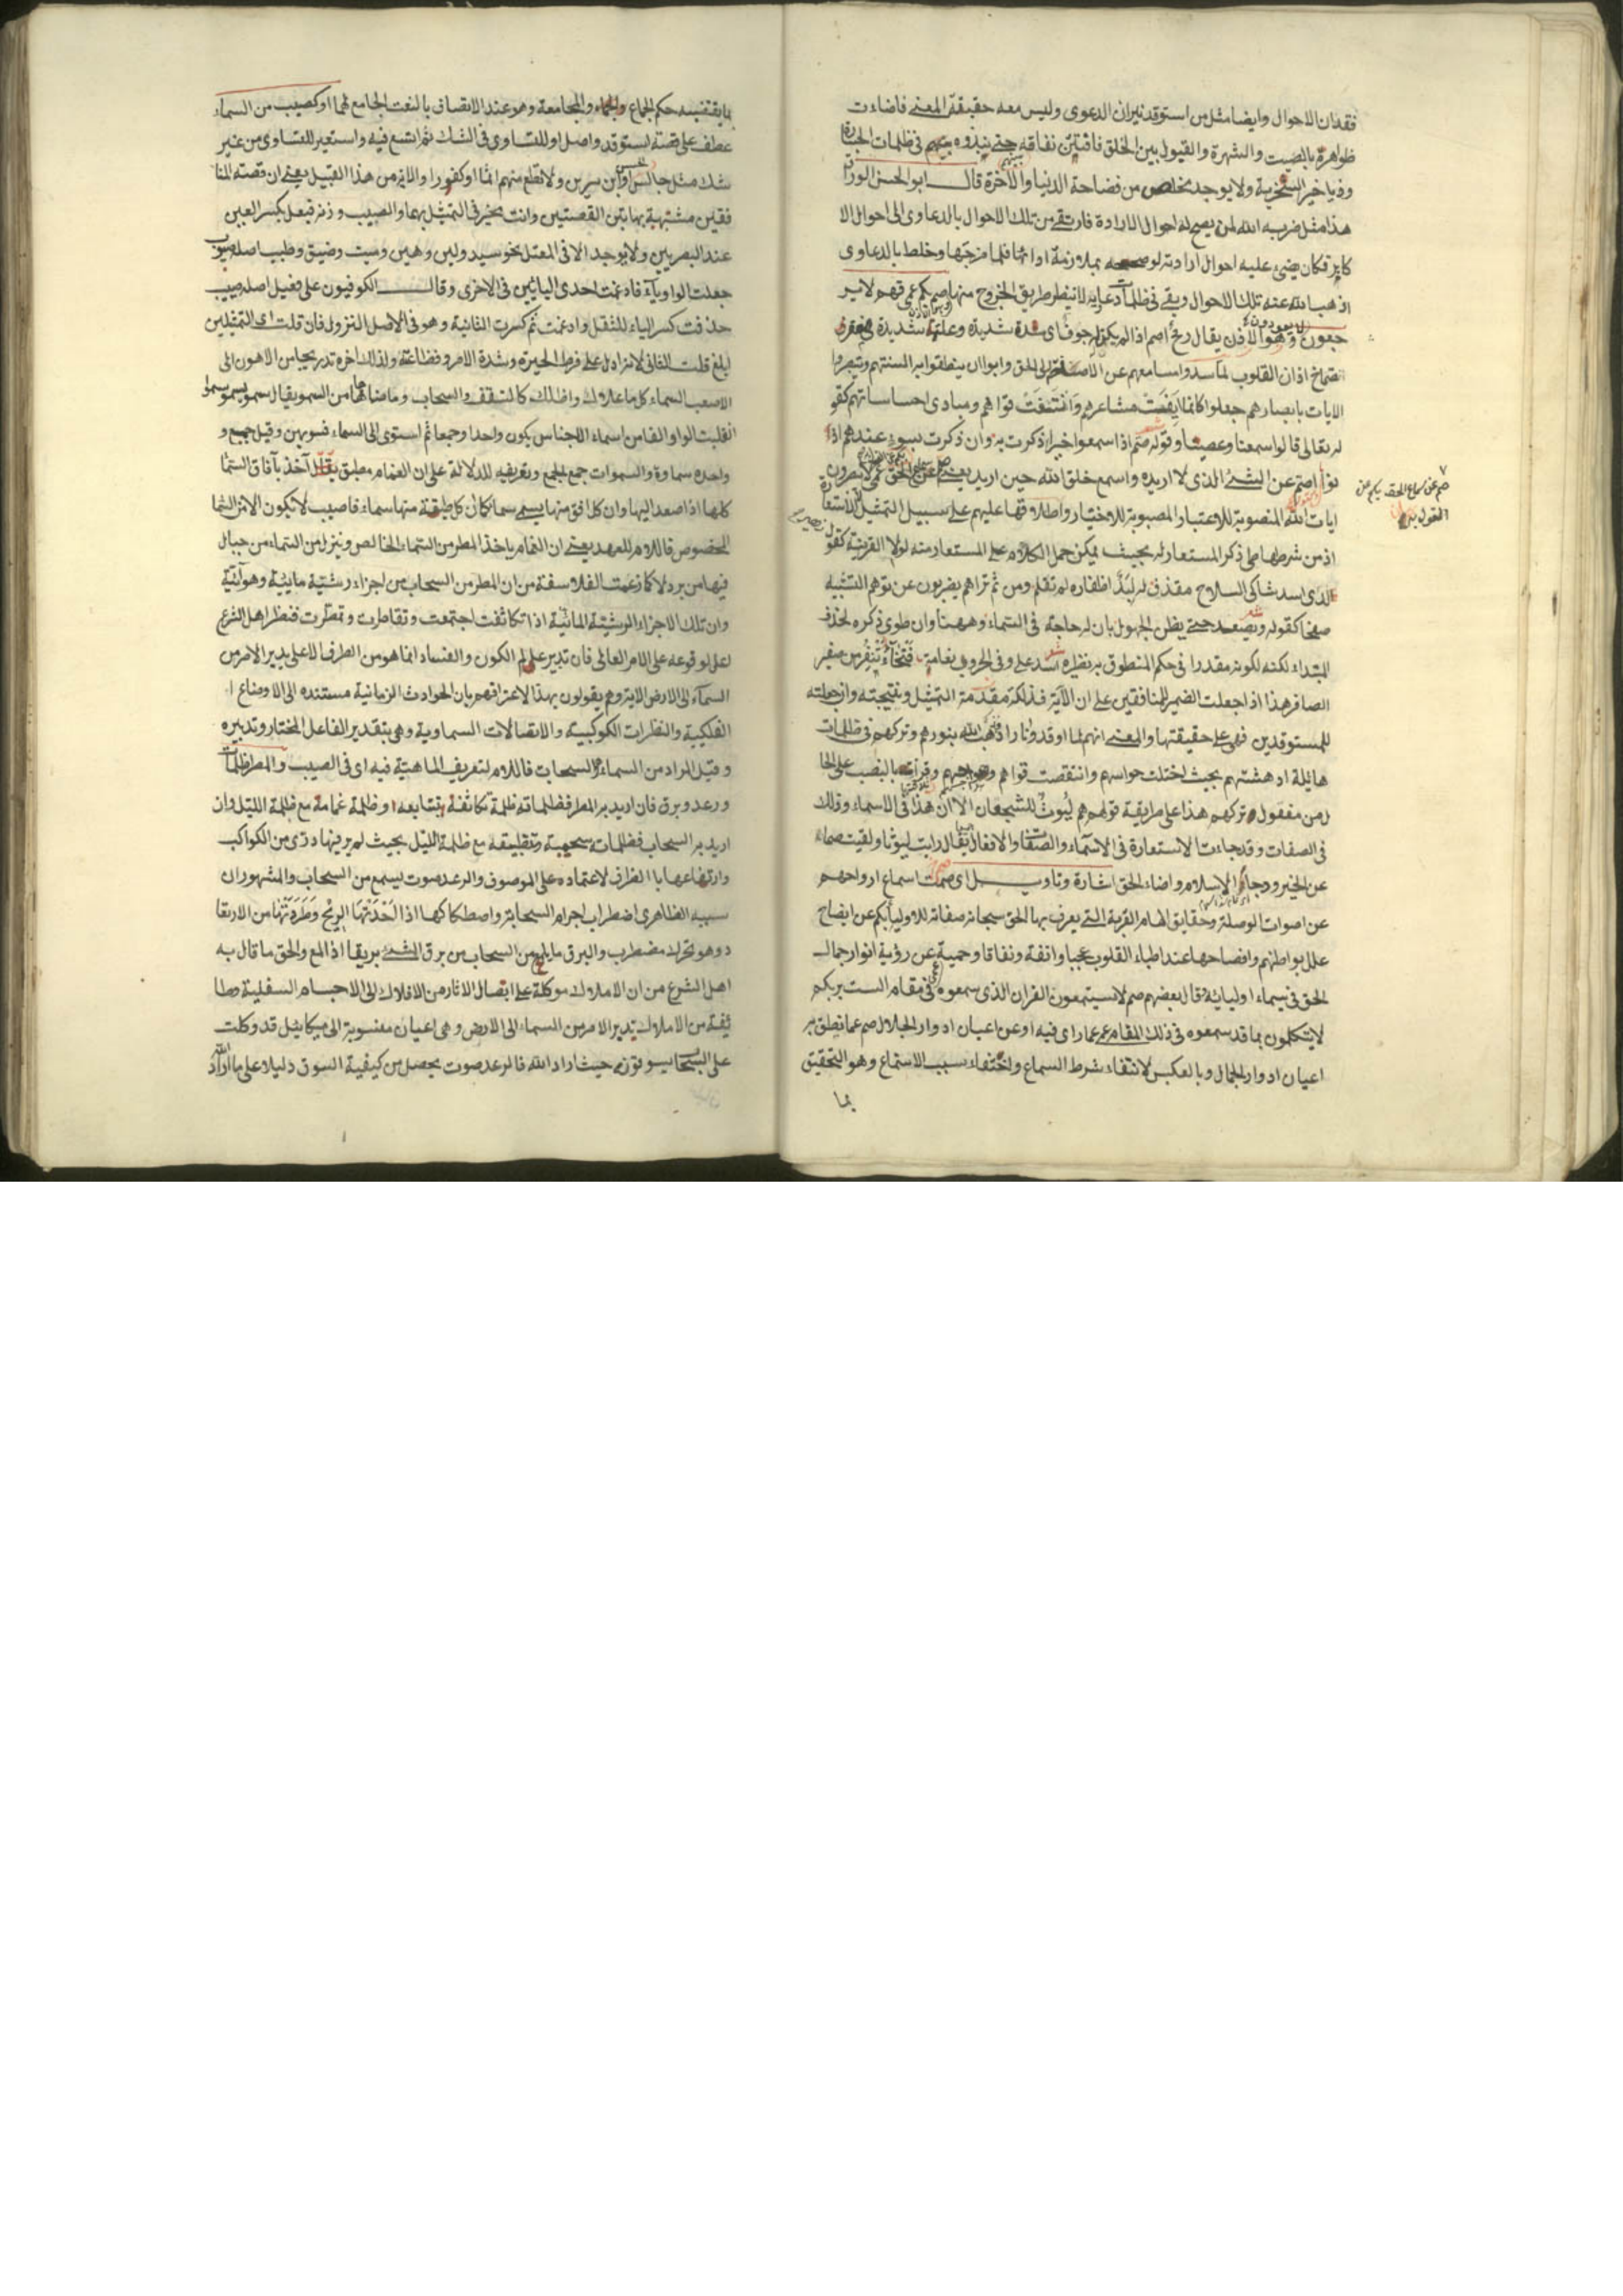 فقدان الاحوال وايضا مثل من استوقد نيران الدعوى وليس معه حقيقة المعنى فاضاءت
ظواهره بالصيت والشهرة والقبول بين الخلق فافشى نفاقه حتى نبذوه في ظلمات
السخرية ولا يوجد مخلص من فضاحة الدنيا والآخرة قال ابو الحسن الوراق
هذا مثل ضربه الله لمن يصح له احوال الارادة فارتقى من تلك الاحوال بالدعاوى الى احوال الا
كابر فكان يضئ عليه احوال ارادته لو بملازمة ادابها فلما مزجها وخلط بالدعاوى
اذهب الله عنه تلك الاحوال وبقى في ظلمات دعاويه لا ينظر طريق الخروج منها صم بكم عمى فهم لا ير
جعون الاذن يقال رمح اصم اذا لم يكن اجوف اى شدة شديدة
صماخ اذان القلوب لما سدوا مسامعهم عن الاصاخة الى الحق وابوا ان ينطقوا به السنتهم ويتبصروا
الايات بابصارهم جعلوا كانما ايفت مشاعرهم وانتفت قواهم ومبادى احساساتهم كقو
له تعالى قالوا سمعنا وعصينا وقوله صم اذا سمعوا خيرا ذكرت به وان ذكرت بسوء عندهم اذ
نوا اصم عن الشئ الذى لا اريده واسمع خلق الله حين اريد يعنى عمى لا يبصرون
ايات الله المنصوبة للاعتبار المصبوبة للاختيار واطلاقها عليهم على سبيل التمثيل لا الاستعارة
صم عن سماع الحق بكم عن
القول به
اذ من شرطها طى ذكر المستعار له بحيث يمكن حمل الكلام على المستعار منه لولا القرينة كقول زهير
لدى اسد شاكى السلاح مقذف له لبد اظفاره لم تقلم ومن ثم تراهم يضربون عن توهم التشبيه
صفحا كقوله ويصعد حتى يظن الجهول بان له حاجة في السماء وههنا وان طوى ذكره لحذف
المبتداء لكنه لكونه مقدرا في حكم المنطوق به نظيره اسد على وفى الحروب نعامة فتخاء تنفر من صفير
الصافر هذا اذا جعلت الضمير للمنافقين على ان الآية فذلكة مقدمة التمثيل ونتيجته وان جعلته
للمستوقدين فهى على حقيقتها والمعنى انهم لما اوقدوا نارا ذهب الله بنورهم وتركهم في ظلمات
هايلة ادهشتهم بحيث اختلت حواسهم وانتقصت قواهم بالنصب على الحا
ل من مفعول تركهم هذا على طريقة قولهم هم ليوث للشجعان الا ان هذا في الاسماء وذلك
في الصفات وقد جاءت الاستعارة في الاسماء والصفات والافعال يقال رايت ليوثا ولقيت صماء
عن الخير ودجا الاسلام واضاء الحق اشارة وتاويل اى صمت اسماع ارواحهم
عن اصوات الوصلة وحقايق الهام القربة التى يعرف بها الحق سبحانه صفاته للاولياء بكم عن ايضاح
علل بواطنهم وافصاحها عند اطباء القلوب عجبا وانفة ونفاقا وحمية عن رؤية انوار جمال
الحق في سيماء اوليائه قال بعضهم صم لا يستمعون القران الذى سمعوه في مقام الست بربكم
لا يتكلمون بما قد سمعوه في ذلك المقام عمى عما راى فيه او عن اعيان ادوار الجلال صم عما نطق به
اعيان ادوار الجمال وبالعكس لانتفاء شرط السماع واختفاء سبب الاستماع وهو التحقيق
بما
بما يقتضيه حكم الجماع والجماء والمجامعة وهو عند الاتصاف بالنعت الجامع لهما او كصيب من السماء
عطف على قصة استوقد واصل او للتساوى في الشك ثم اتسع فيه واستعير للتساوى من غير
شك مثل جالس الحسن او ابن سيرين ولا تطع منهم اثما او كفورا والاية من هذا القبيل يعنى ان قصته المنا
فقين مشتبهة بهاتين القصتين وانت مخير في التمثيل بهما والصيب وزنه فيعل بكسر العين
عند البصريين ولا يوجد الا في المعتل نحو سيد ولين وهين وميت وضيق وطيب اصله صيوب
جعلت الواو ياء فادغمت احدى اليائين في الاخرى وقال الكوفيون على فعيل اصله صييب
حذفت كسر الياء للثقل وادغمت ثم كسرت الثانية وهو في الاصل النزول فان قلت اى التمثلين
ابلغ قلت الثانى لانه ادل على فرط الحيرة وشدة الامر وفظاعته ولذلك اخره تدريجا من الاهون الى
الاصعب السماء كل ما علاك واظلك كالسقف والسحاب وما ضاهاها من السمو يقال سمو يسمو سموا
انقلبت الواو الفا من اسماء الاجناس يكون واحدا وجمعا ثم استوى الى السماء فسويهن وقيل جمع و
واحده سماوة والسموات جمع الجمع وتعريفه للدلالة على ان الغمام مطبق آخذ بآفاق السما
كلها اذا صعد اليها وان كل افق منها يسمى سماء كما ان كل طبقة منها سماء فاصيب لا يكون الا من السما
المخصوص فاللام للعهد يعنى ان الغمام ياخذ المطر من السماء الخالص وينزل من السماء من جبال
فيها من برد لا كما زعمت الفلاسفة من ان المطر من السحاب من اجزاء رشتية مائية وهوائية
وان تلك الاجزاء الرشتية المائية اذا تكاثفت اجتمعت وتقاطرت وتمطرت فنظر اهل الشرع
اعلى لوقوعه على الامر العالى فان تدبير عالم الكون والفساد انما هو من الطرف الاعلى يدبر الامر من
السماء الى الارض الاية وهم يقولون بهذا لاعترافهم بان الحوادث الزمانية مستنده الى الاوضاع ا
الفلكية والنظرات الكوكبية والاتصالات السماوية وهى بتقدير الفاعل المختار وتدبيره
وقيل المراد من السماء السحاب فاللام لتعريف الماهية فيه اى في الصيب والمطر ظلمات
ورعد وبرق فان اريد به المطر فظلماته ظلمة تكاثفة بتتابعه وظلمة غمامة مع ظلمة الليل وان
اريد به السحاب فظلماته سحمته وتطبيقه مع ظلمة الليل بحيث لم ير فيها درى من الكواكب
وارتفاعها بالظرف لاعتماده على الموصوف والرعد صوت يسمع من السحاب والمشهور ان
سببه الظاهرى اضطراب اجرام السحاب واصطكاكها اذا اخذتها الريح وطردتها من الارتعا
د وهو تحرك مضطرب والبرق ما يلمع من السحاب من برق الشئ بريقا اذا لمع والحق ما قال به
اهل الشرع من ان الاملاك موكلة على اتصال الاثار من الافلاك الى الاجسام السفلية وطا
ئفة من الاملاك تدبير الامر من السماء الى الارض وهى اعيان منسوبة الى ميكائيل قد وكلت
على السحاب يسوقونه حيث اراد الله فالرعد صوت يحصل من كيفية السوق دليلا على ما اراد الله